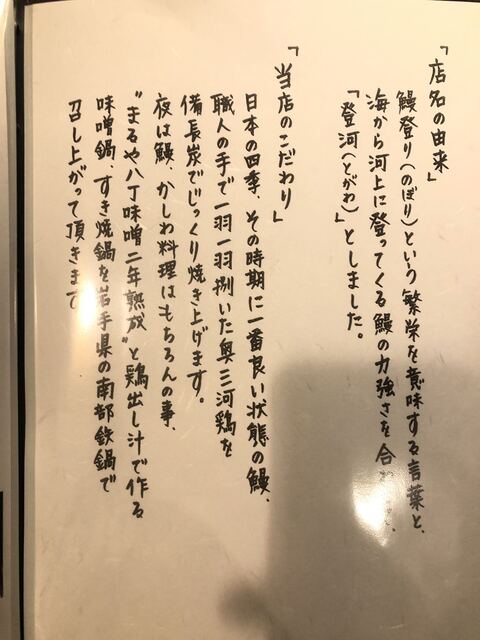 「店名の由来」
鰻登り(のぼり)という繁栄を意味する言葉と、
海から河上に登ってくる鰻の力強さを合
「登河(とがわ)」としました。
「当店のこだわり」
日本の四季、その時期に一番良い状態の鰻、
職人の手で一羽一羽捌いた奥三河鶏を
備長炭でじっくり焼き上げます。
夜は鰻、かしわ料理はもちろんの事、
"まるや八丁味噌二年熟成"と鶏出し汁で作る
味噌鍋、すき焼鍋を岩手県の南部鉄鍋で
召し上がって頂きます